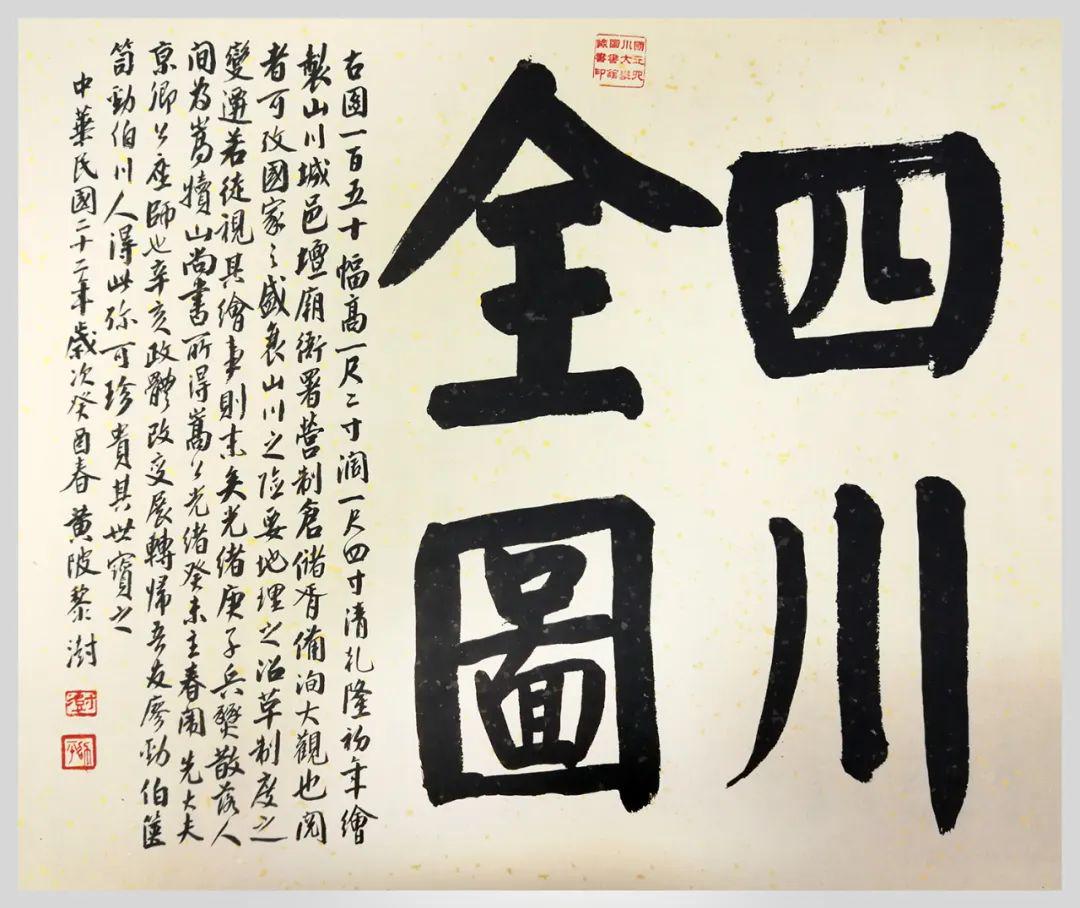 四川
全圖
國立四
川大學
圖書館
藏書印
右圖一百五十幅高一尺二寸濶一尺四寸清乾隆初年繪
製山川城邑壇廟衙署營制倉儲胥備洵大觀也閱
者可攷國家之盛衰山川之險要地理之沿革制度之
變遷若徒視其繪事則末矣光緒庚子兵燹散落人
間為嵩犢山尚書所得嵩公光緒癸未主春闈先大夫
京卿公座師也辛亥政體改变展轉歸吾友廖勁伯篋
笥勁伯川人得此弥可珍貴其世寶之
中華民國二十二年歲次癸酉春黄陂黎澍
澍